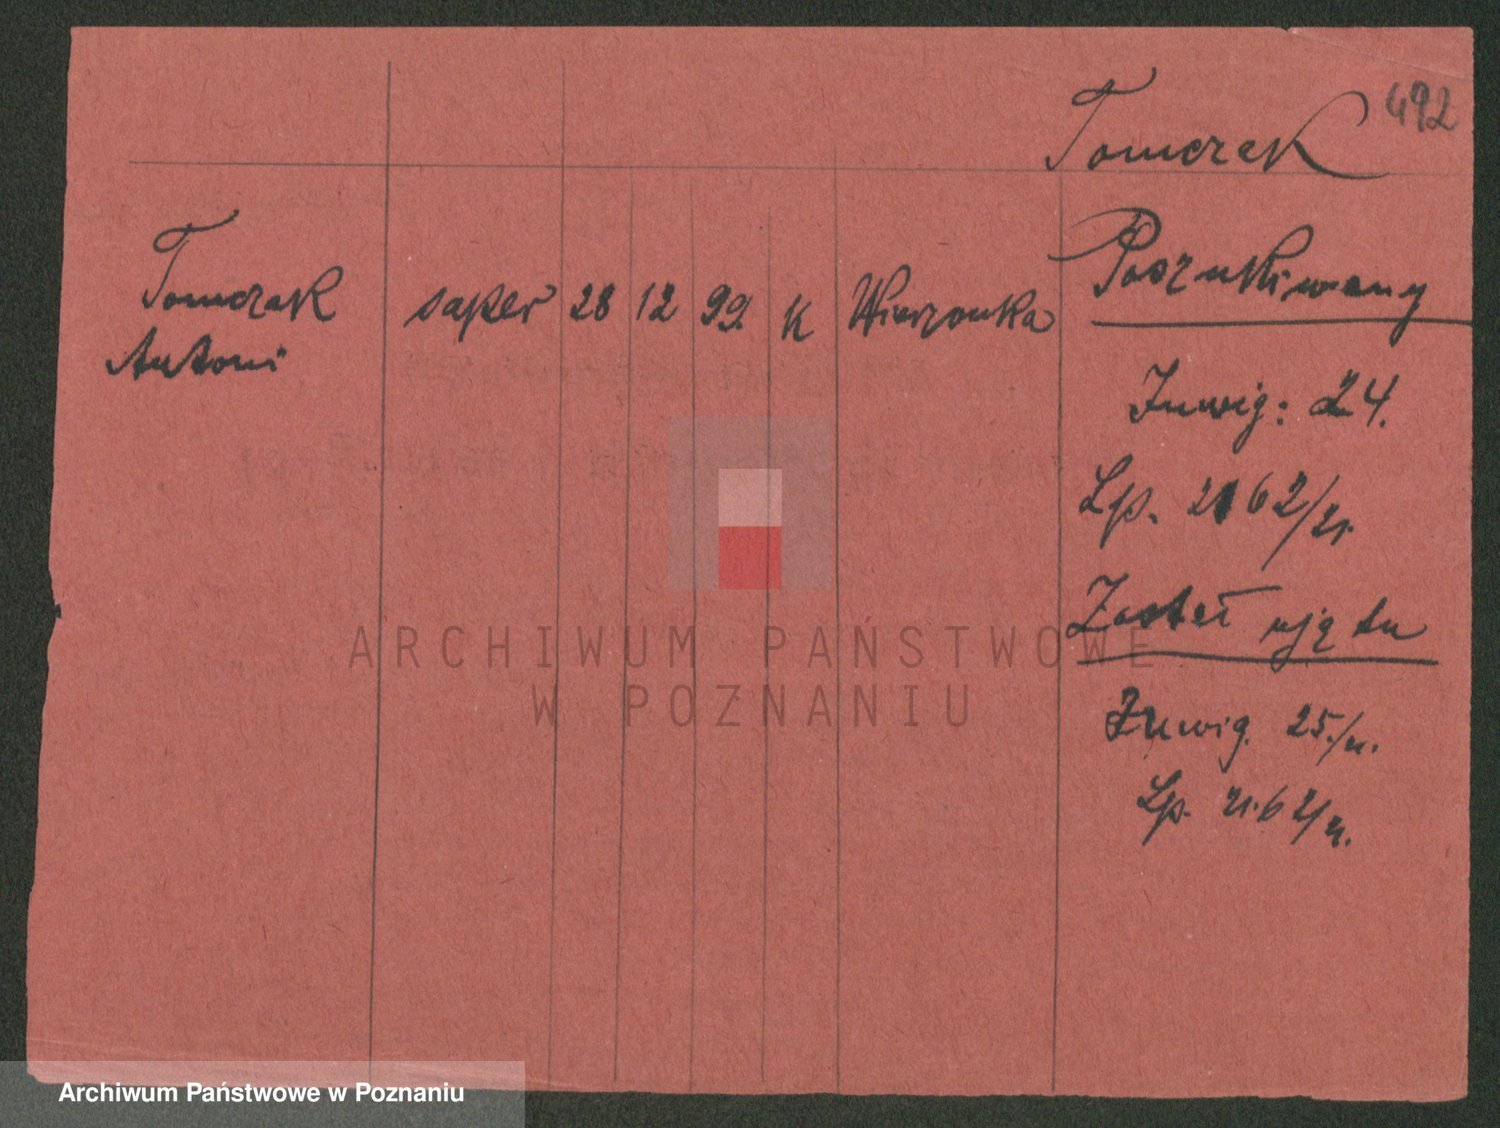 492
Tomczak
Tomczak
Antoni
saper 28 12 99. K Wierzonka
Poszukiwany
Inwig: 24.
Lp. 2162/21.
Został ujętu
Inwig. 25./21.
Lp. 2162/21.
ARCHIWUM PAŃSTWOWE
W POZNANIU
Archiwum Państwowe w Poznaniu